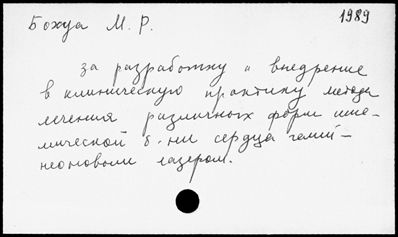 Бохуа М. Р.
1989
за разработку и внедрение
в клиническую практику метода
лечения различных форм ише-
мической б-ни сердца гелий-
неоновым лазером.